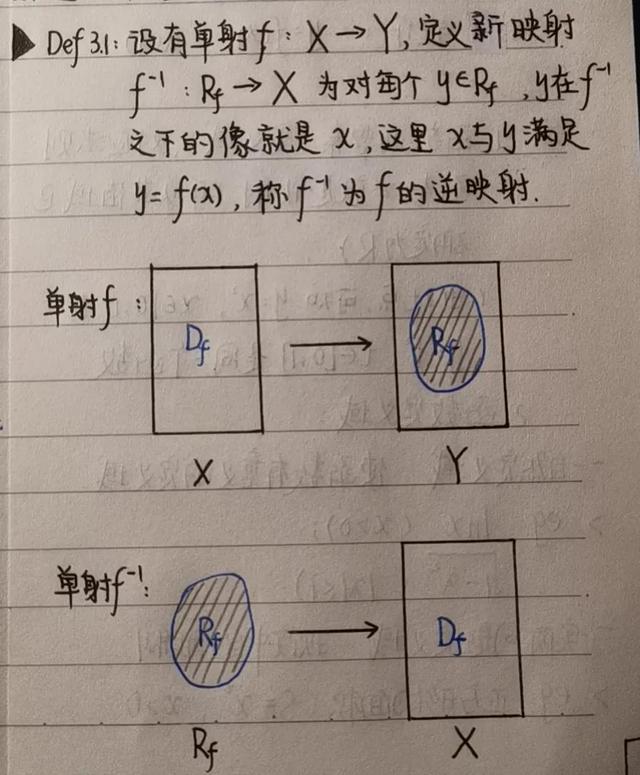 ▶ Def 3.1: 设有单射 f : X → Y, 定义新映射
f⁻¹ : Rf → X 为对每个 y∈Rf , y在f⁻¹
之下的像就是 x , 这里 x与y满足
y = f(x) , 称 f⁻¹ 为 f 的逆映射.
单射f :
Df
Rf
X
Y
单射f⁻¹:
Rf
Df
Rf
X